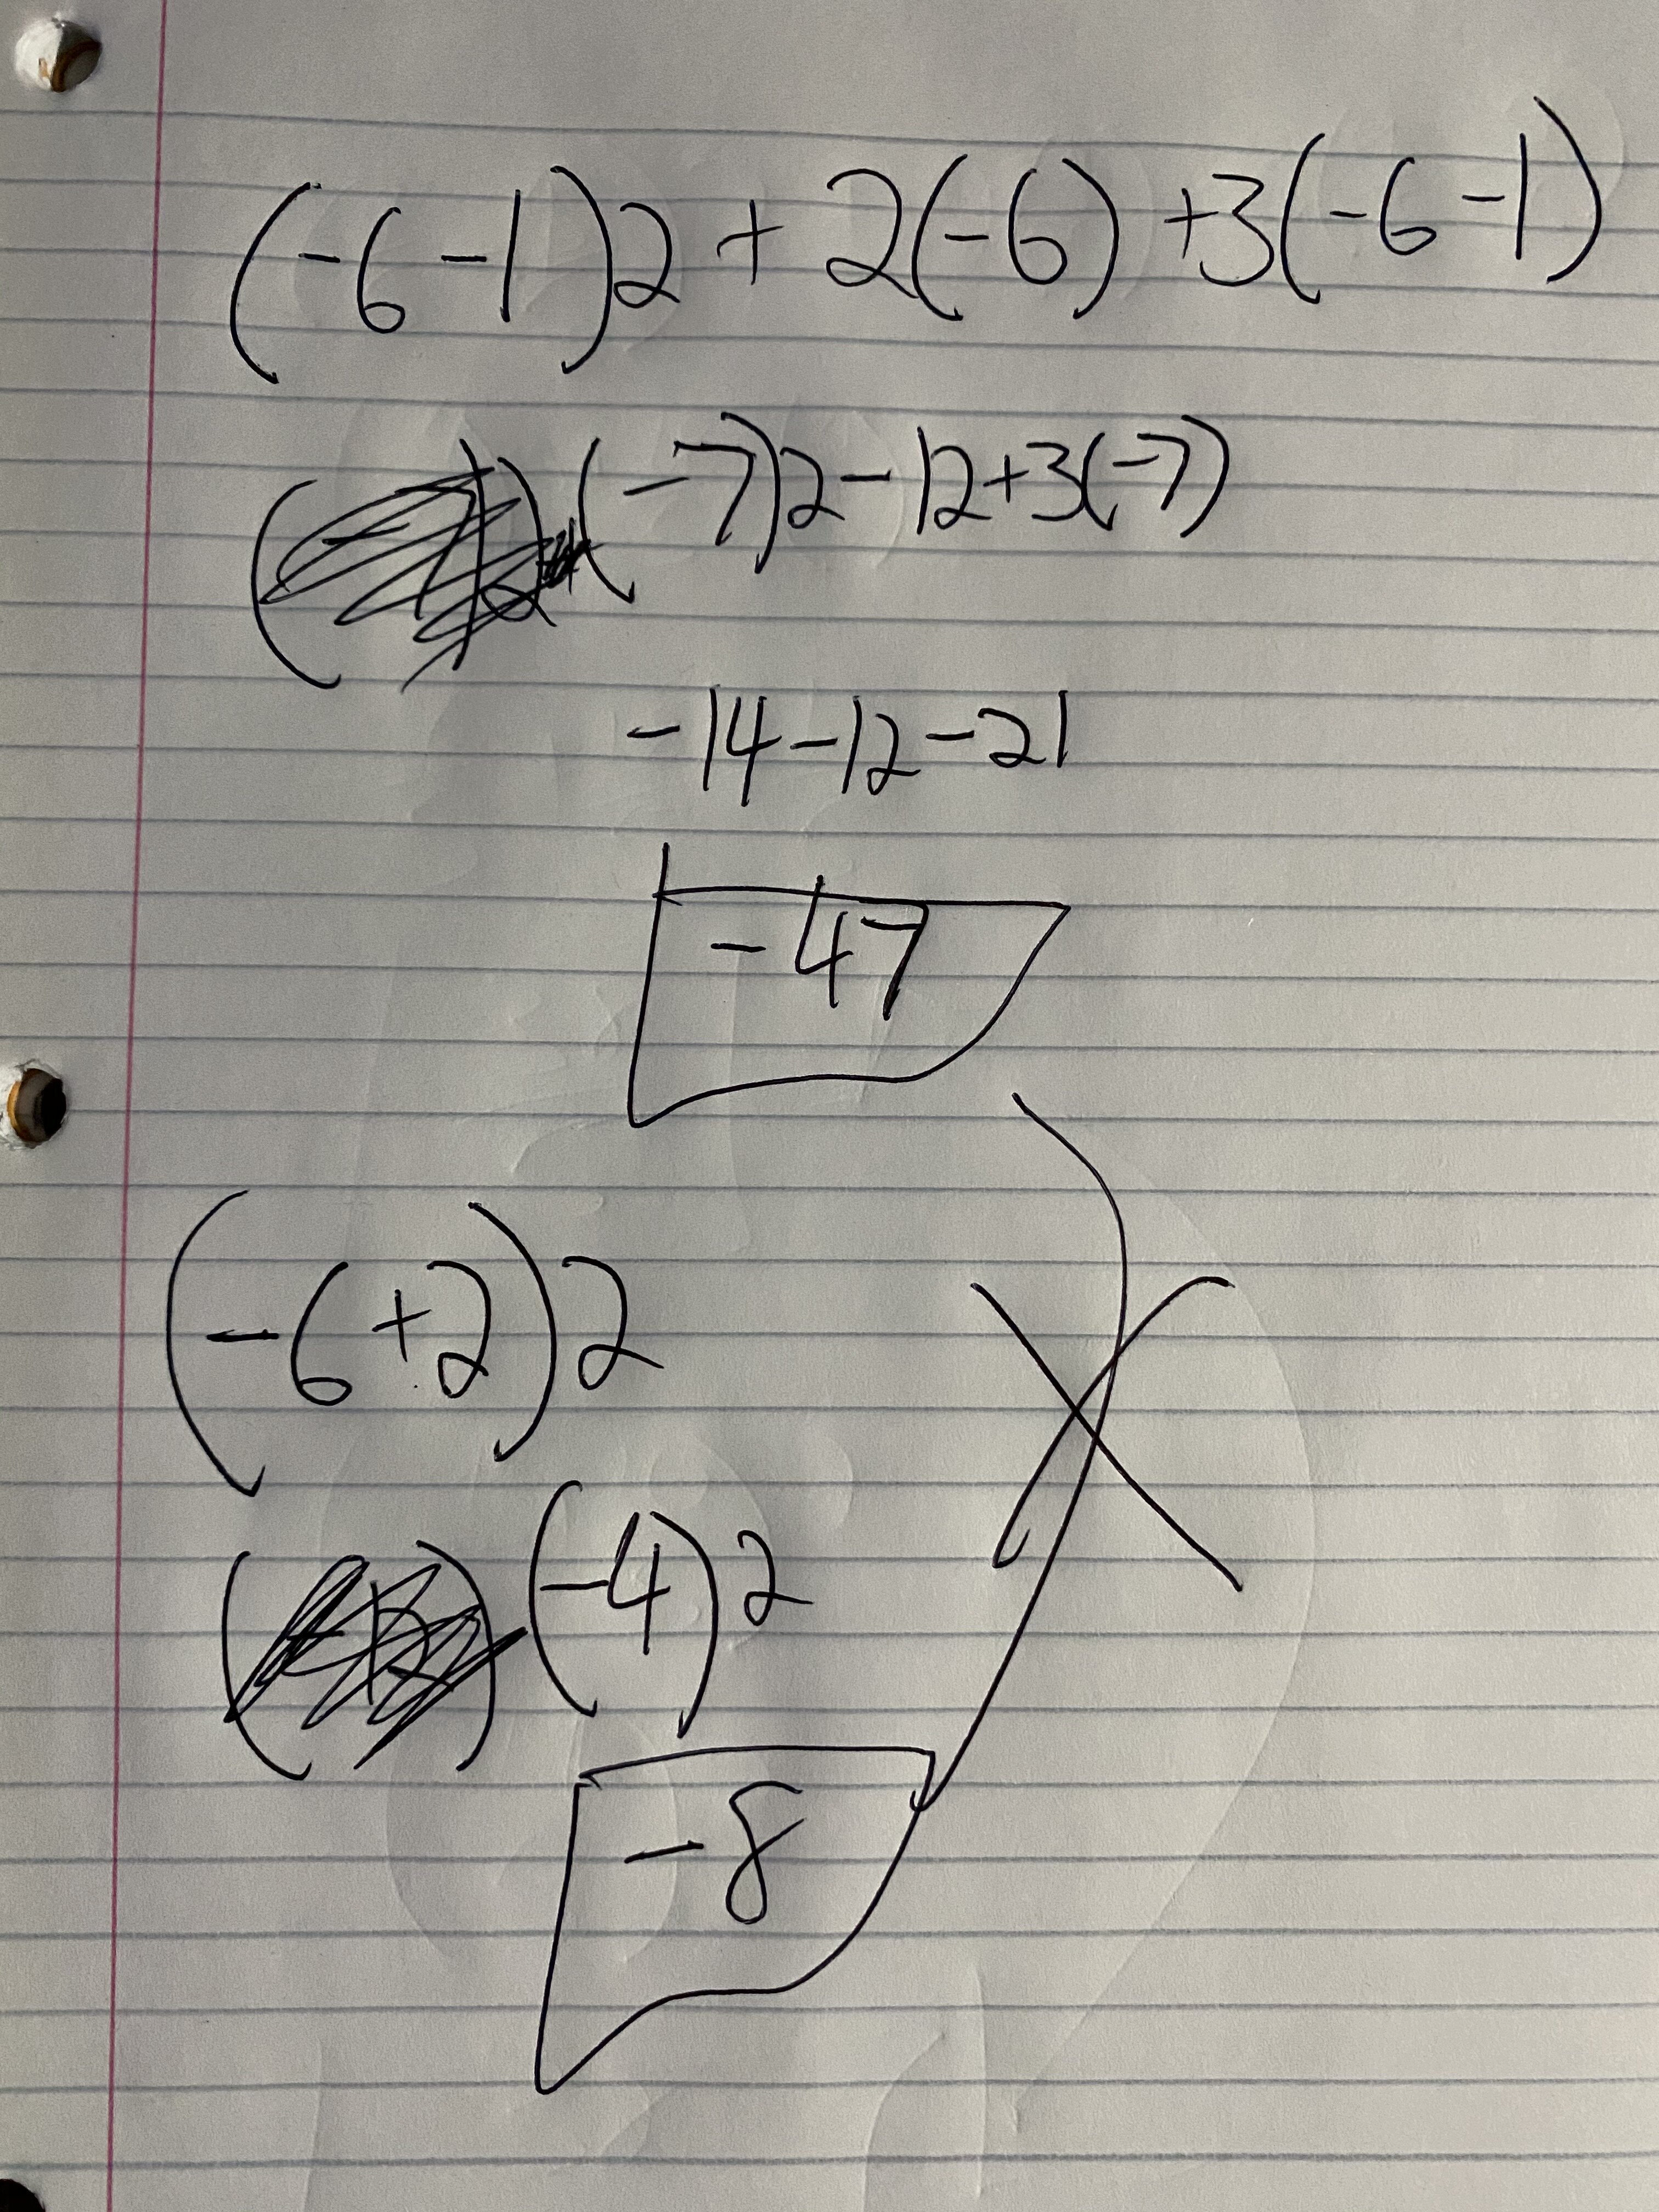 (-6-1)2+2(-6)+3(-6-1)
(-7)2-12+3(-7)
-14-12-21
-47
(-6+2)2
(-4)2
-8